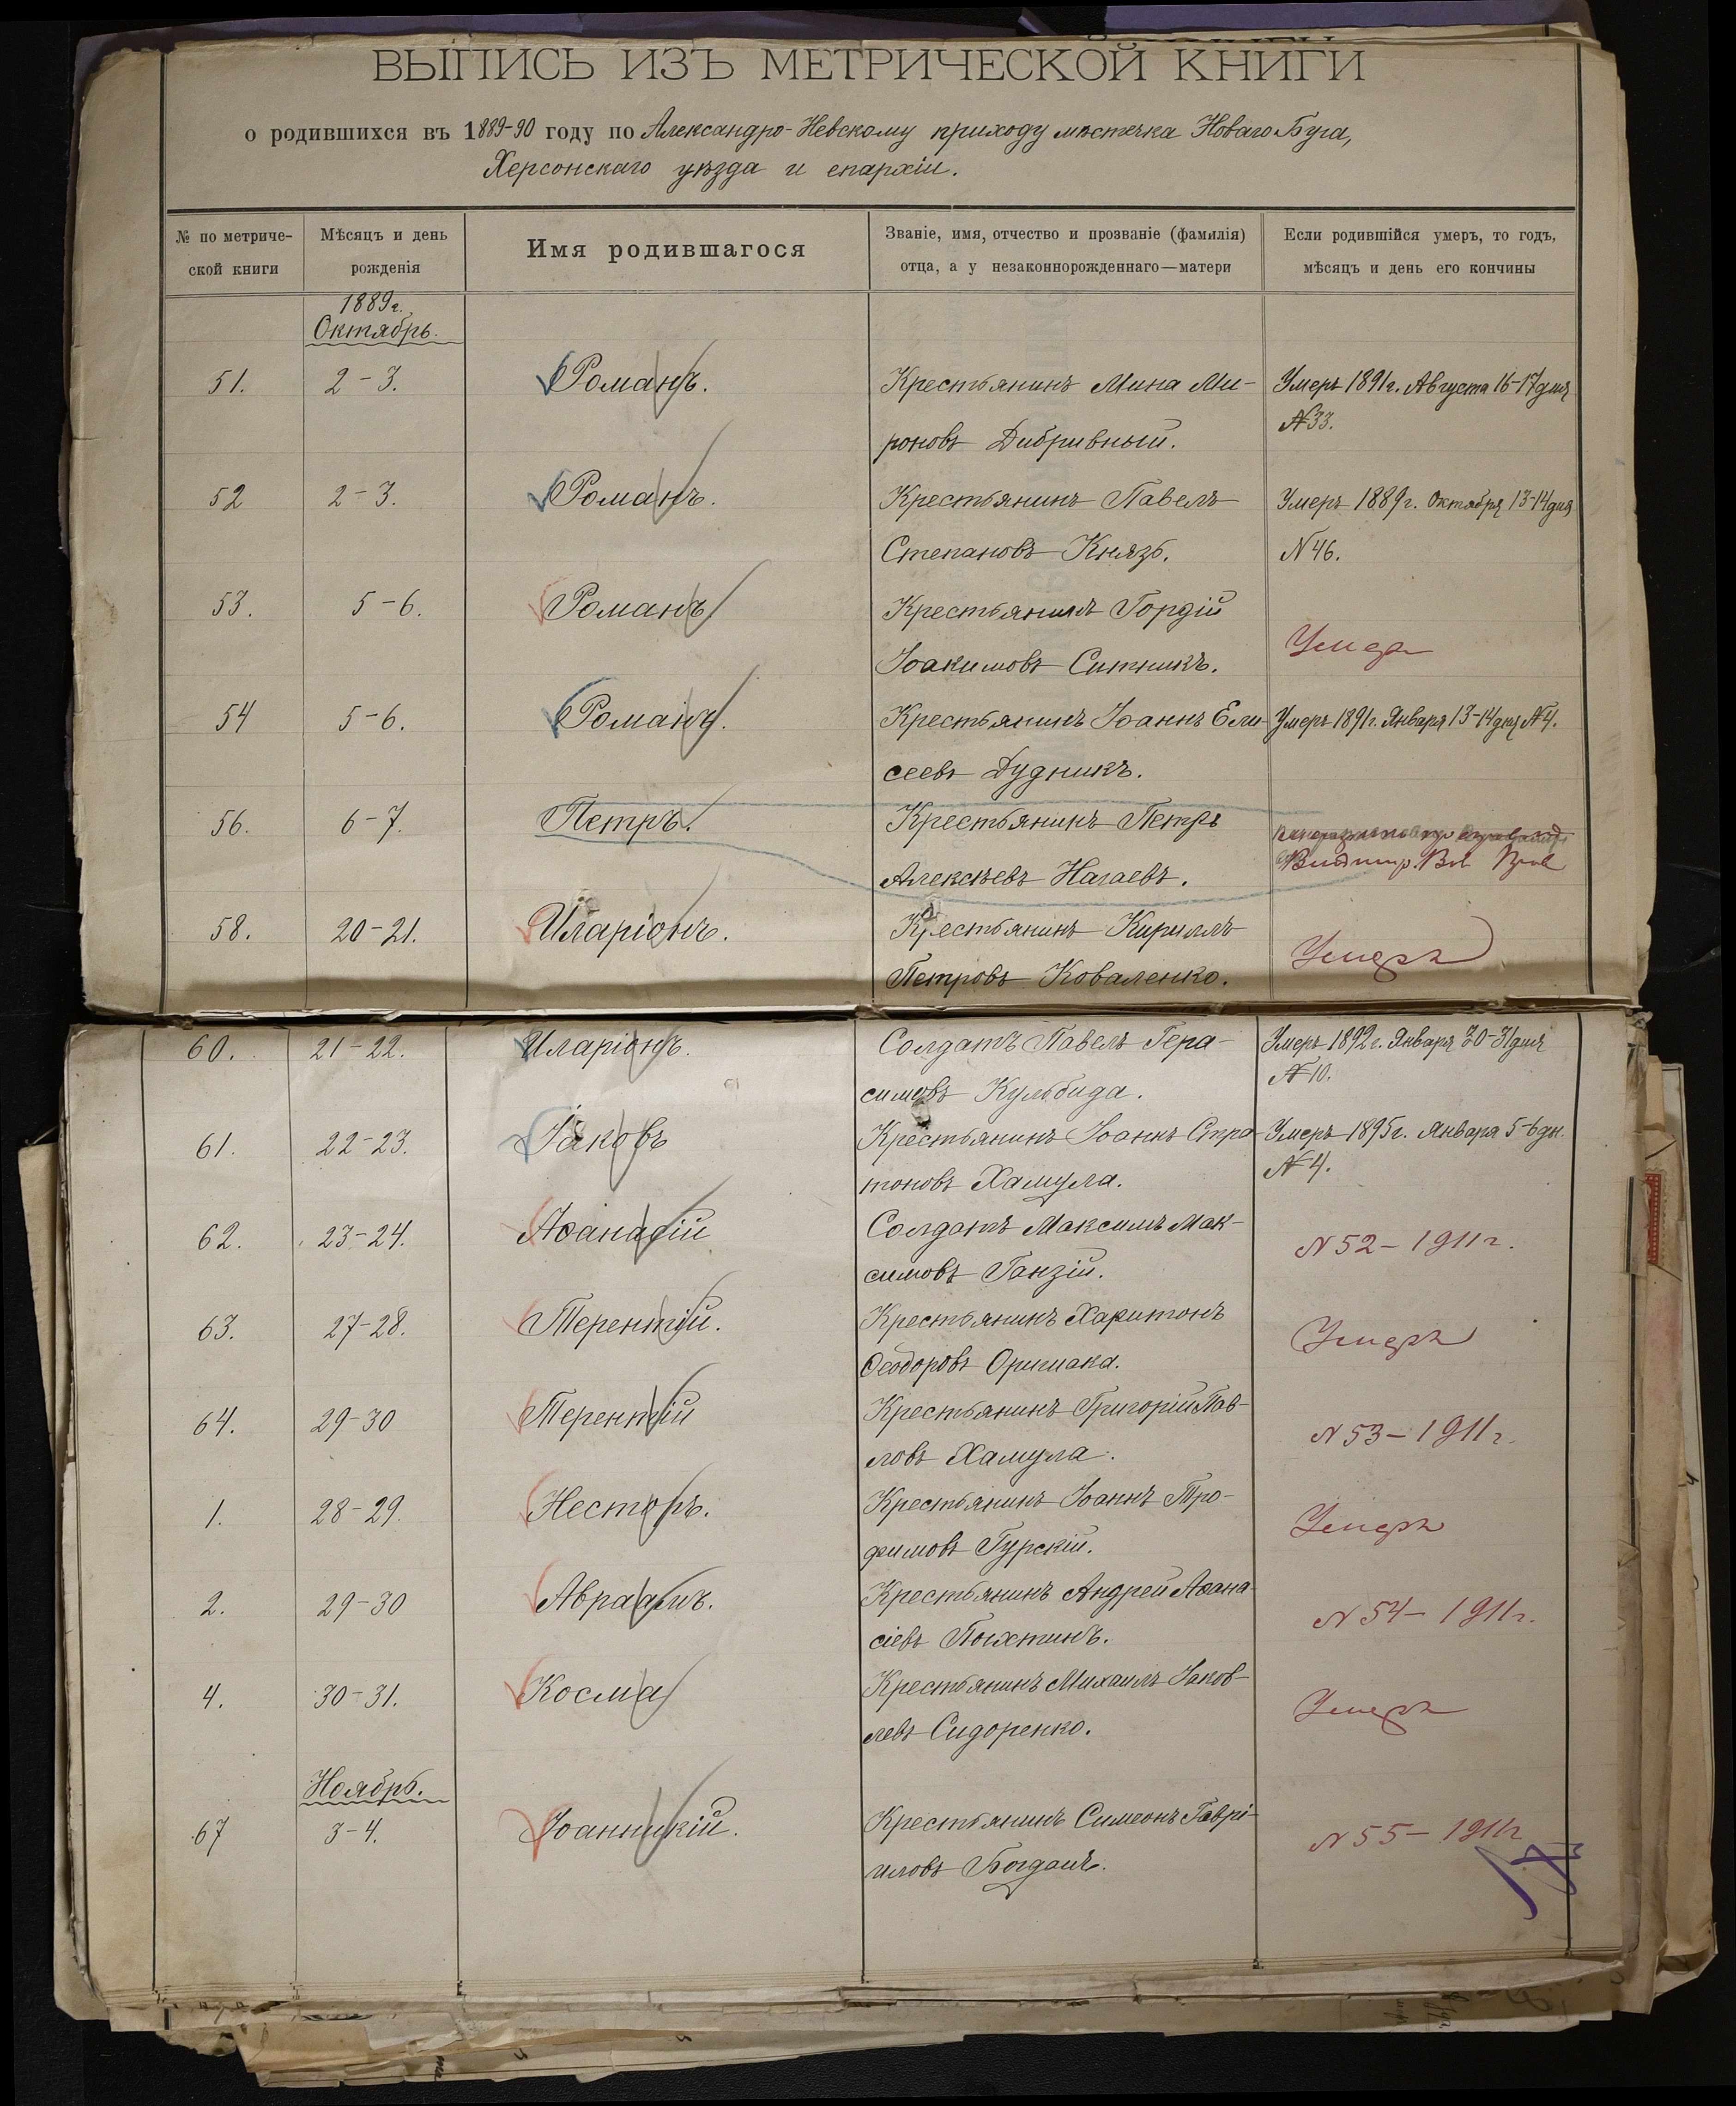 ВЫПИСЬ ИЗЪ МЕТРИЧЕСКОЙ КНИГИ
о родившихся въ 1889-90 году по Александро-Невскому приходу мѣстечка Новаго Буга,
Херсонскаго уѣзда и епархіи.
№ по метриче-
ской книги
Мѣсяцъ и день
рожденія
Имя родившагося
Званіе, имя, отчество и прозваніе (фамилія)
отца, а у незаконнорожденнаго—матери
Если родившійся умеръ, то годъ,
мѣсяцъ и день его кончины
1889 г.
Октябрь.
51. 2-3. Романъ. Крестьянинъ Мина Ми- Умеръ 1891 г. Августа 16-17 дня
роновъ Дибривный. №33.
52 2-3. Романъ. Крестьянинъ Павелъ Умеръ 1889 г. Октября 13-14 дня
Степановъ Князь. №46.
53. 5-6. Романъ. Крестьянинъ Гордій
Іоакимовъ Ситникъ. Умеръ
54 5-6. Романъ. Крестьянинъ Іоаннъ Ели- Умеръ 1891 г. Января 13-14 дня №4.
сеевъ Дудникъ.
56. 6-7. Петръ. Крестьянинъ Петръ
Алексѣевъ Нагаевъ.
58. 20-21. Иларіонъ. Крестьянинъ Кириллъ
Петровъ Коваленко. Умеръ
60. 21-22. Иларіонъ. Солдатъ Павелъ Гера- Умеръ 1892 г. Января 30-31 дня
симовъ Кульбида. №10.
61. 22-23. Іаковъ Крестьянинъ Іоаннъ Стра- Умеръ 1895 г. Января 5-6 дн.
тоновъ Хамула. №4.
62. 23-24. Аѳанасій Солдатъ Максимъ Мак- №52-1911 г.
симовъ Ганзій.
63. 27-28. Терентій. Крестьянинъ Харитонъ Умеръ
Ѳеодоровъ Оришака.
64. 29-30 Терентій Крестьянинъ Григорій Пав- №53-1911 г.
ловъ Хамула.
1. 28-29. Несторъ. Крестьянинъ Іоаннъ Тро- Умеръ
фимовъ Гурскій.
2. 29-30 Авраамъ. Крестьянинъ Андрей Аѳана- №54-1911 г.
сіевъ
4. 30-31. Косма Крестьянинъ Михаилъ Іаков- Умеръ
левъ Сидоренко.
Ноябрь.
67 3-4. Іоанникій. Крестьянинъ Симеонъ Гаврі- №55-1911 г
иловъ Богданъ.